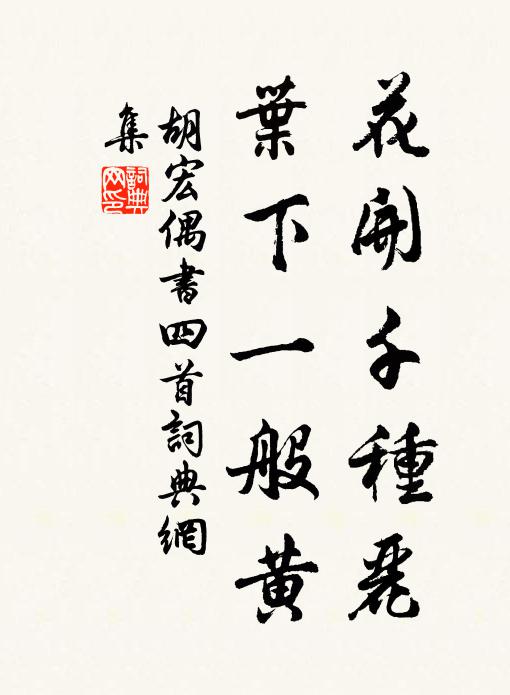 花開千種麗
葉下一般黄
胡宏偶書四首詞典網
集
詞典
网印